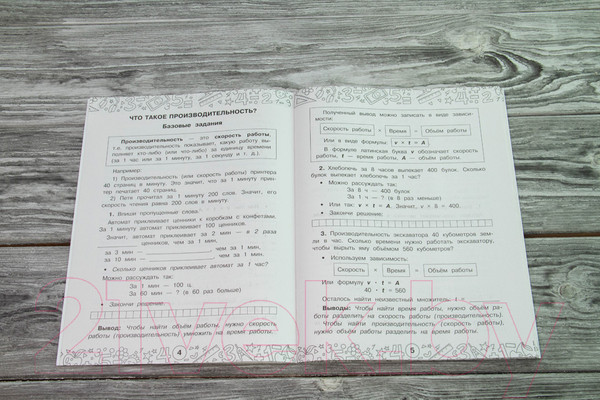 ЧТО ТАКОЕ ПРОИЗВОДИТЕЛЬНОСТЬ?
Базовые задания
Производительность — это скорость работы,
т.е. производительность показывает, какую работу вы-
полняет кто-либо (или что-либо) за единицу времени
(за 1 час или за 1 минуту, за 1 секунду и т. д.).
Например:
1) Производительность (или скорость работы) принтера
40 страниц в минуту. Это значит, что за 1 минуту прин-
тер печатает 40 страниц.
2) Петя прочитал за 1 минуту 200 слов. Значит, его
скорость чтения равна 200 слов в минуту.
1. Впиши пропущенные слова:
Автомат приклеивает ценники к коробкам с конфетами.
За 1 минуту автомат приклеивает 100 ценников.
Значит, автомат приклеивает за 2 мин — в 2 раза
ценников, чем за 1 мин,
за 3 мин — чем за 1 мин,
за 10 мин — чем за 1 мин.
• Сколько ценников приклеивает автомат за 1 час?
Можно рассуждать так:
За 1 мин — 100 ц.
За 60 мин — ? (в 60 раз больше)
• Закончи решение:
Вывод: Чтобы найти объём работы, нужно скорость
работы (производительность) умножить на время работы.
4
Полученный вывод можно записать в виде зависи-
мости:
Скорость работы × Время = Объём работы
Или в виде формулы: v • t = A
В формуле латинская буква v обозначает скорость
работы, t — время работы, A — объём работы.
2. Хлебопечь за 8 часов выпекает 400 булок. Сколько
булок выпекает хлебопечь за 1 час?
• Можно рассуждать так:
За 8 ч — 400 булок
За 1 ч — ? (в 8 раз меньше)
• Или так: v • t = A. Значит, v • 8 = 400.
Закончи решение:
3. Производительность экскаватора 40 кубометров зем-
ли в час. Сколько времени нужно работать экскаватору,
чтобы вырыть яму объёмом 560 кубометров?
• Используем зависимость:
Скорость работы × Время = Объём работы
Или формулу v • t = A
40 • t = 560
Осталось найти неизвестный множитель t =
Выводы: Чтобы найти время работы, нужно объём ра-
боты разделить на скорость работы (производительность).
Чтобы найти производительность (скорость работы),
нужно объём работы разделить на время работы.
5